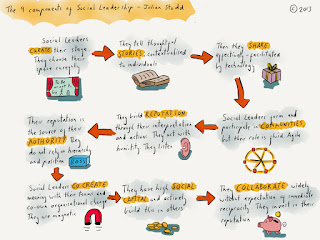 The 9 components of Social Leadership - Julian Stodd
© 2013
Social Leaders
CURATE their stage.
They choose their
space carefully
They tell thoughtful
STORIES, contextualised
to individuals
Then they SHARE
effectively - facilitated
by technology
Social Leaders form and
participate in COMMUNITIES,
but their role is fluid. Agile
They build REPUTATION
through their interpretation
and actions. They act with
humility. They listen
Their reputation is
the source of their
AUTHORITY. They
do not rely on hierarchy
and position
BOSS
Social Leaders CO-CREATE
meaning with their teams and
co-own organisational change.
They are magnetic
They have high SOCIAL
CAPITAL and actively
build this in others
They COLLABORATE widely
without expectation of immediate
reciprocity. They invest in their
reputation